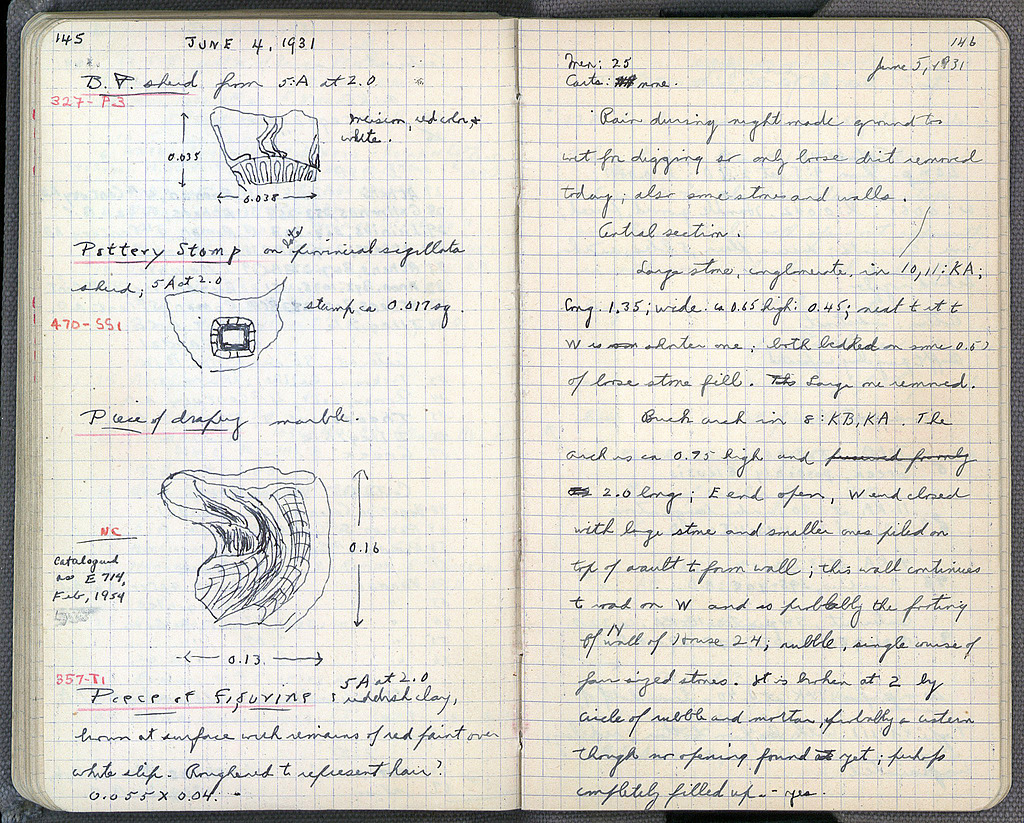 145
JUNE 4, 1931
B.F. sherd from 5:A at 2.0
327-P3
Incision, red color, &
white.
0.035
0.038
Pottery Stamp on late provincial sigillata
sherd; 5A at 2.0
stamp ca 0.017 sq.
470-SS1
Piece of drapery marble.
NC
Catalogued
as E 714,
Feb, 1954
0.16
0.13
357-T1
Piece of Figurine; 5A at 2.0
reddish clay,
brown at surface with remains of red paint over
white slip. Roughened to represent hair?
0.055 X 0.04.
146
June 5, 1931
Men: 25
Carts: none.
Rain during night made ground too
wet for digging so only loose dirt removed
today; also some stone and walls.
Central section.
Large stone, conglomerate, in 10,11:KA;
long. 1.35; wide. ca 0.65 high. 0.45; next to it to
W is shorter one; both bedded on some 0.5
of loose stone fill. Large one removed.
arch in 8:KB, KA. The
arch is ca 0.75 high and
2.0 long; E end open, W end closed
with large stone and smaller ones piled on
top of vault to form wall; this wall continues
to road on W and is probably the footing
of N wall of House 24; rubble, single course of
fair sized stones. It is broken at Z by
circle of rubble and mortar, probably a cistern
though no opening found yet; perhaps
completely filled up. - yes.